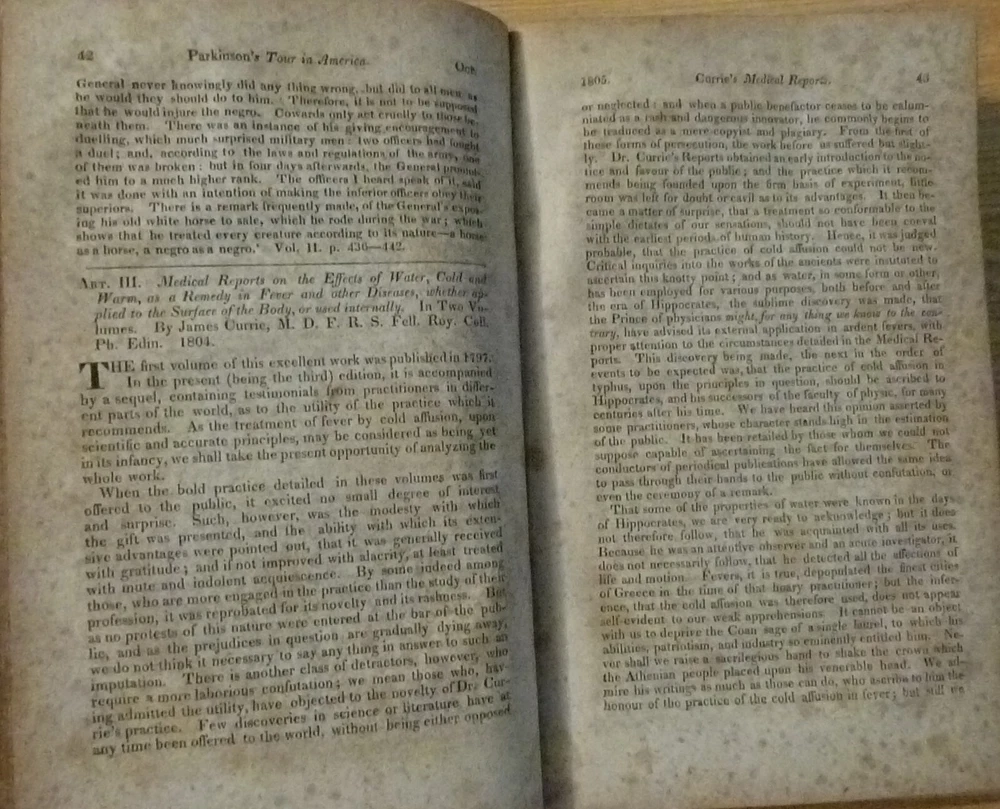 42 Parkinson's Tour in America. Oct.
General never knowingly did any thing wrong, but did to all men as
he would they should do to him. Therefore, it is not to be supposed
that he would injure the negro. Cowards only act cruelly to those be-
neath them. There was an instance of his giving encouragement to
duelling, which much surprised military men: two officers had fought
a duel; and, according to the laws and regulations of the army, one
of them was broken: but in four days afterwards, the General promot-
ed him to a much higher rank. The officers I heard speak of it, said
it was done with an intention of making the inferior officers obey their
superiors. There is a remark frequently made, of the General's expos-
ing his old white horse to sale, which he rode during the war; which
shows that he treated every creature according to its nature—a horse
as a horse, a negro as a negro.' Vol. II. p. 436—442.
ART. III. Medical Reports on the Effects of Water, Cold and
Warm, as a Remedy in Fever and other Diseases, whether ap-
plied to the Surface of the Body, or used internally. In Two Vo-
lumes. By James Currie, M. D. F. R. S. Fell. Roy. Coll.
Ph. Edin. 1804.
THE first volume of this excellent work was published in 1797.
In the present (being the third) edition, it is accompanied
by a sequel, containing testimonials from practitioners in differ-
ent parts of the world, as to the utility of the practice which it
recommends. As the treatment of fever by cold affusion, upon
scientific and accurate principles, may be considered as being yet
in its infancy, we shall take the present opportunity of analyzing the
whole work.
When the bold practice detailed in these volumes was first
offered to the public, it excited no small degree of interest
and surprise. Such, however, was the modesty with which
the gift was presented, and the ability with which its exten-
sive advantages were pointed out, that it was generally received
with gratitude; and if not improved with alacrity, at least treated
with mute and indolent acquiescence. By some indeed among
those, who are more engaged in the practice than the study of their
profession, it was reprobated for its novelty and its rashness. But
as no protests of this nature were entered at the bar of the pub-
lic, and as the prejudices in question are gradually dying away,
we do not think it necessary to say any thing in answer to such an
imputation. There is another class of detractors, however, who
require a more laborious confutation; we mean those who, hav-
ing admitted the utility, have objected to the novelty of Dr. Cur-
rie's practice. Few discoveries in science or literature have at
any time been offered to the world, without being either opposed
1805. Currie's Medical Reports. 43
or neglected: and when a public benefactor ceases to be calum-
niated as a rash and dangerous innovator, he commonly begins to
be traduced as a mere copyist and plagiary. From the first of
these forms of persecution, the work before us suffered but slight-
ly. Dr. Currie's Reports obtained an early introduction to the no-
tice and favour of the public; and the practice which it recom-
mends being founded upon the firm basis of experiment, little
room was left for doubt or cavil as to its advantages. It then be-
came a matter of surprise, that a treatment so conformable to the
simple dictates of our sensations, should not have been coeval
with the earliest periods of human history. Hence, it was judged
probable, that the practice of cold affusion could not be new.
Critical inquiries into the works of the ancients were instituted to
ascertain this knotty point; and as water, in some form or other,
has been employed for various purposes, both before and after
the era of Hippocrates, the sublime discovery was made, that
the Prince of physicians might, for any thing we know to the con-
trary, have advised its external application in ardent fevers, with
proper attention to the circumstances detailed in the Medical Re-
ports. This discovery being made, the next in the order of
events to be expected was, that the practice of cold affusion in
typhus, upon the principles in question, should be ascribed to
Hippocrates, and his successors of the faculty of physic, for many
centuries after his time. We have heard this opinion asserted by
some practitioners, whose character stands high in the estimation
of the public. It has been retailed by those whom we could not
suppose capable of ascertaining the fact for themselves. The
conductors of periodical publications have allowed the same idea
to pass through their hands to the public without confutation, or
even the ceremony of a remark.
That some of the properties of water were known in the days
of Hippocrates, we are very ready to acknowledge; but it does
not therefore follow, that he was acquainted with all its uses.
Because he was an attentive observer and an acute investigator, it
does not necessarily follow, that he detected all the affections of
life and motion. Fevers, it is true, depopulated the finest cities
of Greece in the time of that hoary practitioner; but the infer-
ence, that the cold affusion was therefore used, does not appear
self-evident to our weak apprehensions. It cannot be an object
with us to deprive the Coan sage of a single laurel, to which his
abilities, patriotism, and industry so eminently entitled him. Ne-
ver shall we raise a sacrilegious hand to shake the crown which
the Athenian people placed upon his venerable head. We ad-
mire his writings as much as those can do, who ascribe to him the
honour of the practice of the cold affusion in fever; but still we